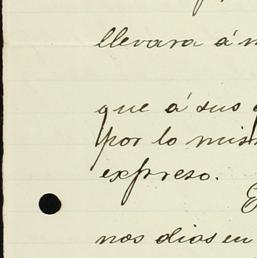 llevara á
que á sus
por lo mis
expreso.
nos dias en